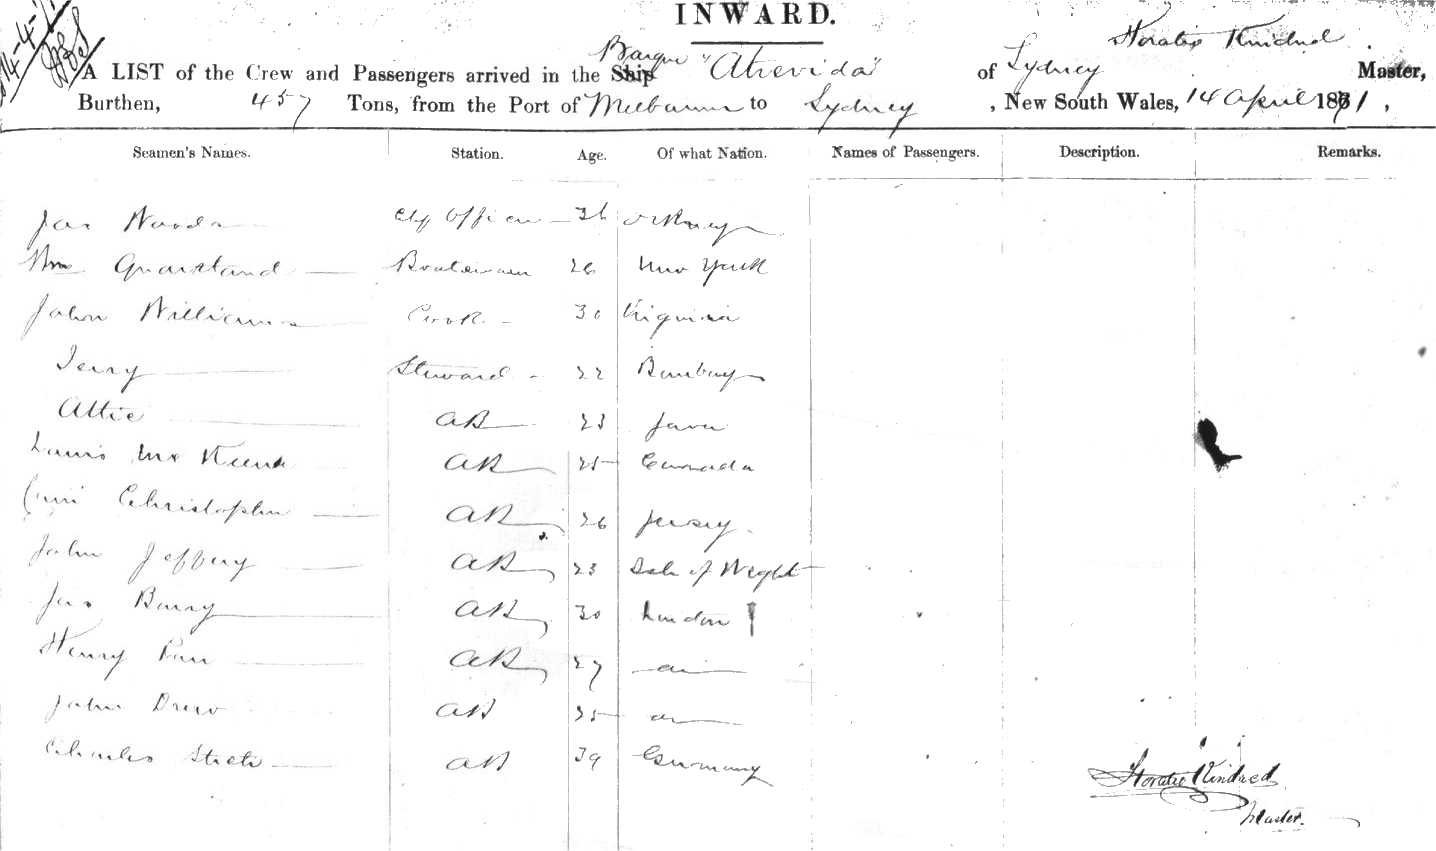 INWARD.
14-4-71
Horatio Kindred
A LIST of the Crew and Passengers arrived in the Ship Barque "Atrevida" of Sydney Master,
Burthen, 457 Tons, from the Port of Melbourne to Sydney, New South Wales, 14 April 1871,
Seamen's Names. Station. Age. Of what Nation. Names of Passengers. Description. Remarks.
Jas Woods Officer 36 Orkney
Wm Boatswain 26 New York
John Williams Cook 30 Virginia
Jerry Steward 22 Bombay
Attie AB 23 Java
Louis AB 25 Canada
Christopher AB 26 Jersey
John Jeffery AB 23 Isle of Wight
Jas Barry AB 30 London
Henry AB 27
John Drew AB 25
Charles AB 39 Germany
Horatio Kindred
Master